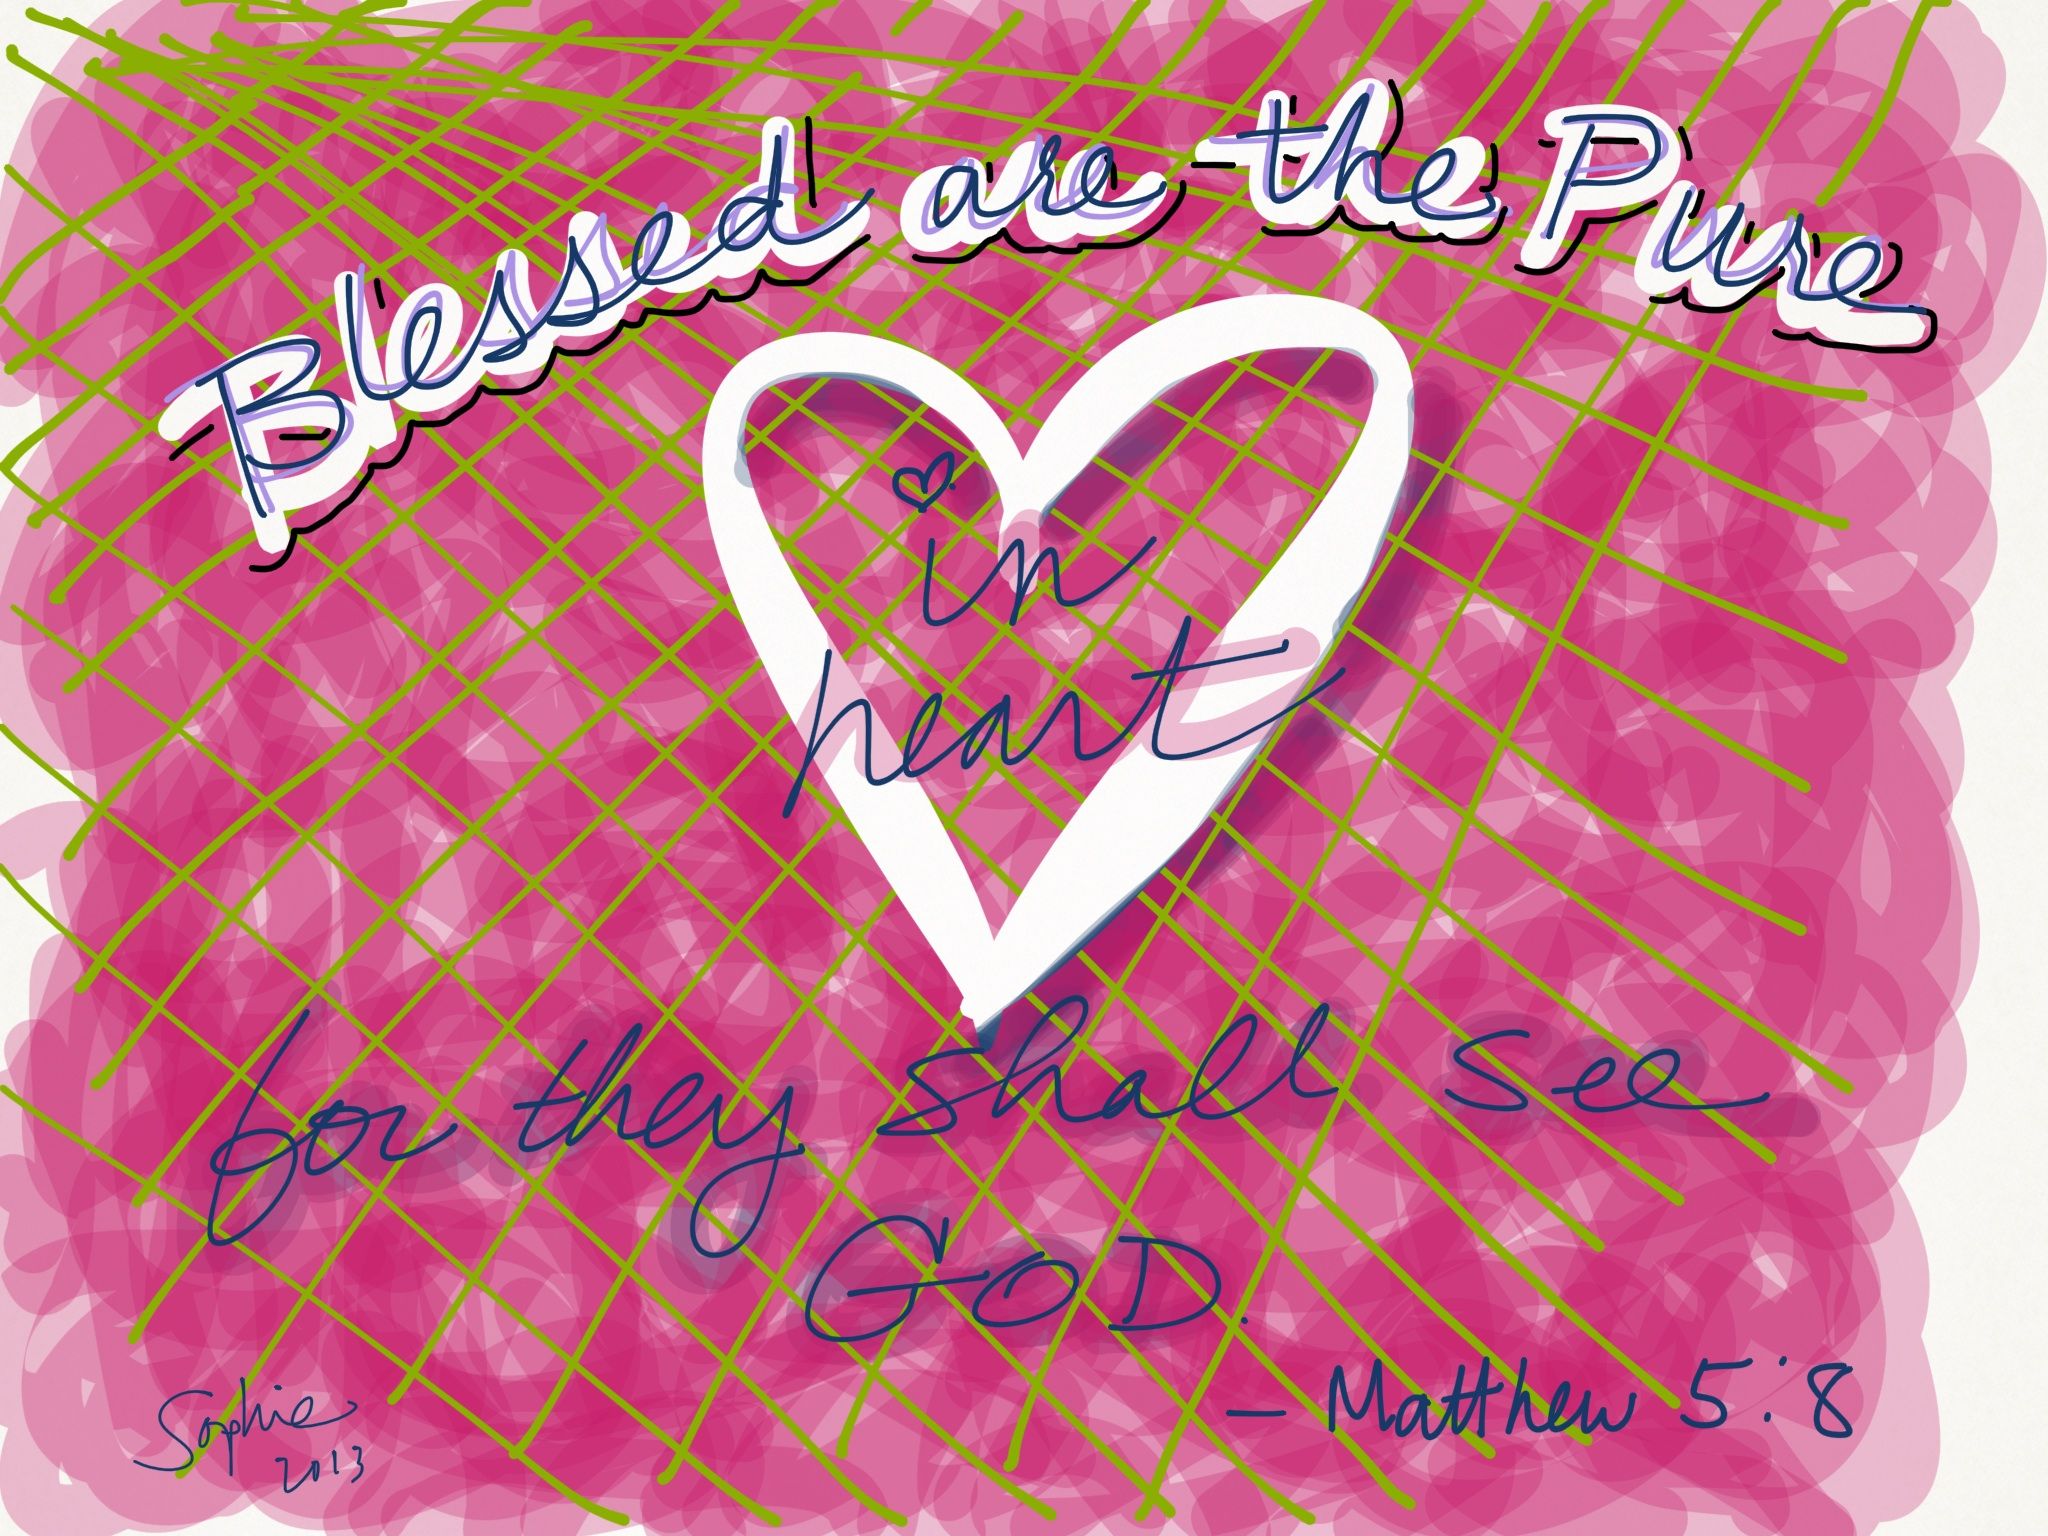 Blessed are the Pure
in
heart
for they shall see
GOD.
- Matthew 5:8
Sophie
2013